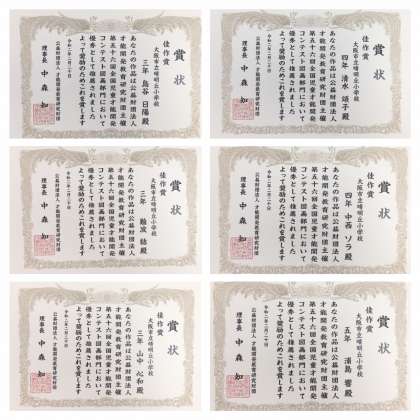 賞状
佳作賞
大阪市立晴明丘小学校
三年 鳥谷 日陽殿
あなたの作品は公益財団法人
才能開発教育研究財団主催
第五十六回全国児童才能開発
コンテスト図画部門において
優秀として推薦されました
よって奨励のためこれを賞します
令和二年二月二十日
公益財団法人 才能開発教育研究財団
理事長 中森 知
賞状
佳作賞
大阪市立晴明丘小学校
四年 清水 頌子殿
あなたの作品は公益財団法人
才能開発教育研究財団主催
第五十六回全国児童才能開発
コンテスト図画部門において
優秀として推薦されました
よって奨励のためこれを賞します
令和二年二月二十日
公益財団法人 才能開発教育研究財団
理事長 中森 知
賞状
佳作賞
大阪市立晴明丘小学校
三年 結殿
あなたの作品は公益財団法人
才能開発教育研究財団主催
第五十六回全国児童才能開発
コンテスト図画部門において
優秀として推薦されました
よって奨励のためこれを賞します
令和二年二月二十日
公益財団法人 才能開発教育研究財団
理事長 中森 知
賞状
佳作賞
大阪市立晴明丘小学校
四年 中西 ソラ殿
あなたの作品は公益財団法人
才能開発教育研究財団主催
第五十六回全国児童才能開発
コンテスト図画部門において
優秀として推薦されました
よって奨励のためこれを賞します
令和二年二月二十日
公益財団法人 才能開発教育研究財団
理事長 中森 知
賞状
佳作賞
大阪市立晴明丘小学校
三年 山中 小和殿
あなたの作品は公益財団法人
才能開発教育研究財団主催
第五十六回全国児童才能開発
コンテスト図画部門において
優秀として推薦されました
よって奨励のためこれを賞します
令和二年二月二十日
公益財団法人 才能開発教育研究財団
理事長 中森 知
賞状
佳作賞
大阪市立晴明丘小学校
五年 浦島 響殿
あなたの作品は公益財団法人
才能開発教育研究財団主催
第五十六回全国児童才能開発
コンテスト図画部門において
優秀として推薦されました
よって奨励のためこれを賞します
令和二年二月二十日
公益財団法人 才能開発教育研究財団
理事長 中森 知